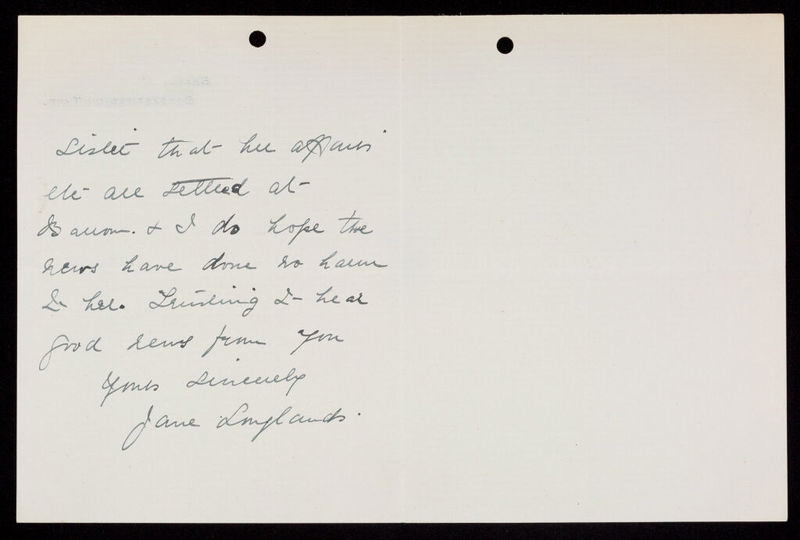 Sister that her affairs
etc are settled at
Barrow. & I do hope the
news have done no harm
to her. Trusting to hear
good news from you
Yours sincerely
Jane Longlands.